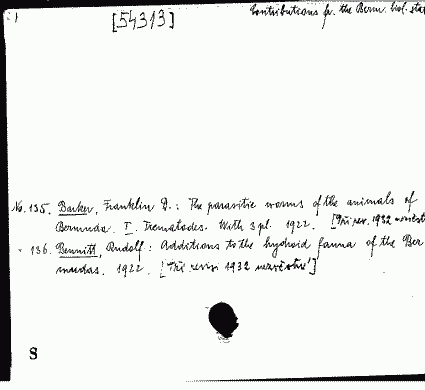 [54313]
Contributions fr. the Berm. biol. stat
No. 135. Barker, Franklin D.: The parasitic worms of the animals of
Bermuda. I. Trematodes. With 3 pl. 1922. [Při rev. 1932
" 136. Bennitt, Rudolf: Additions to the hydroid fauna of the Ber
mudas. 1922. [Při revisi 1932 nezvěstné]
S